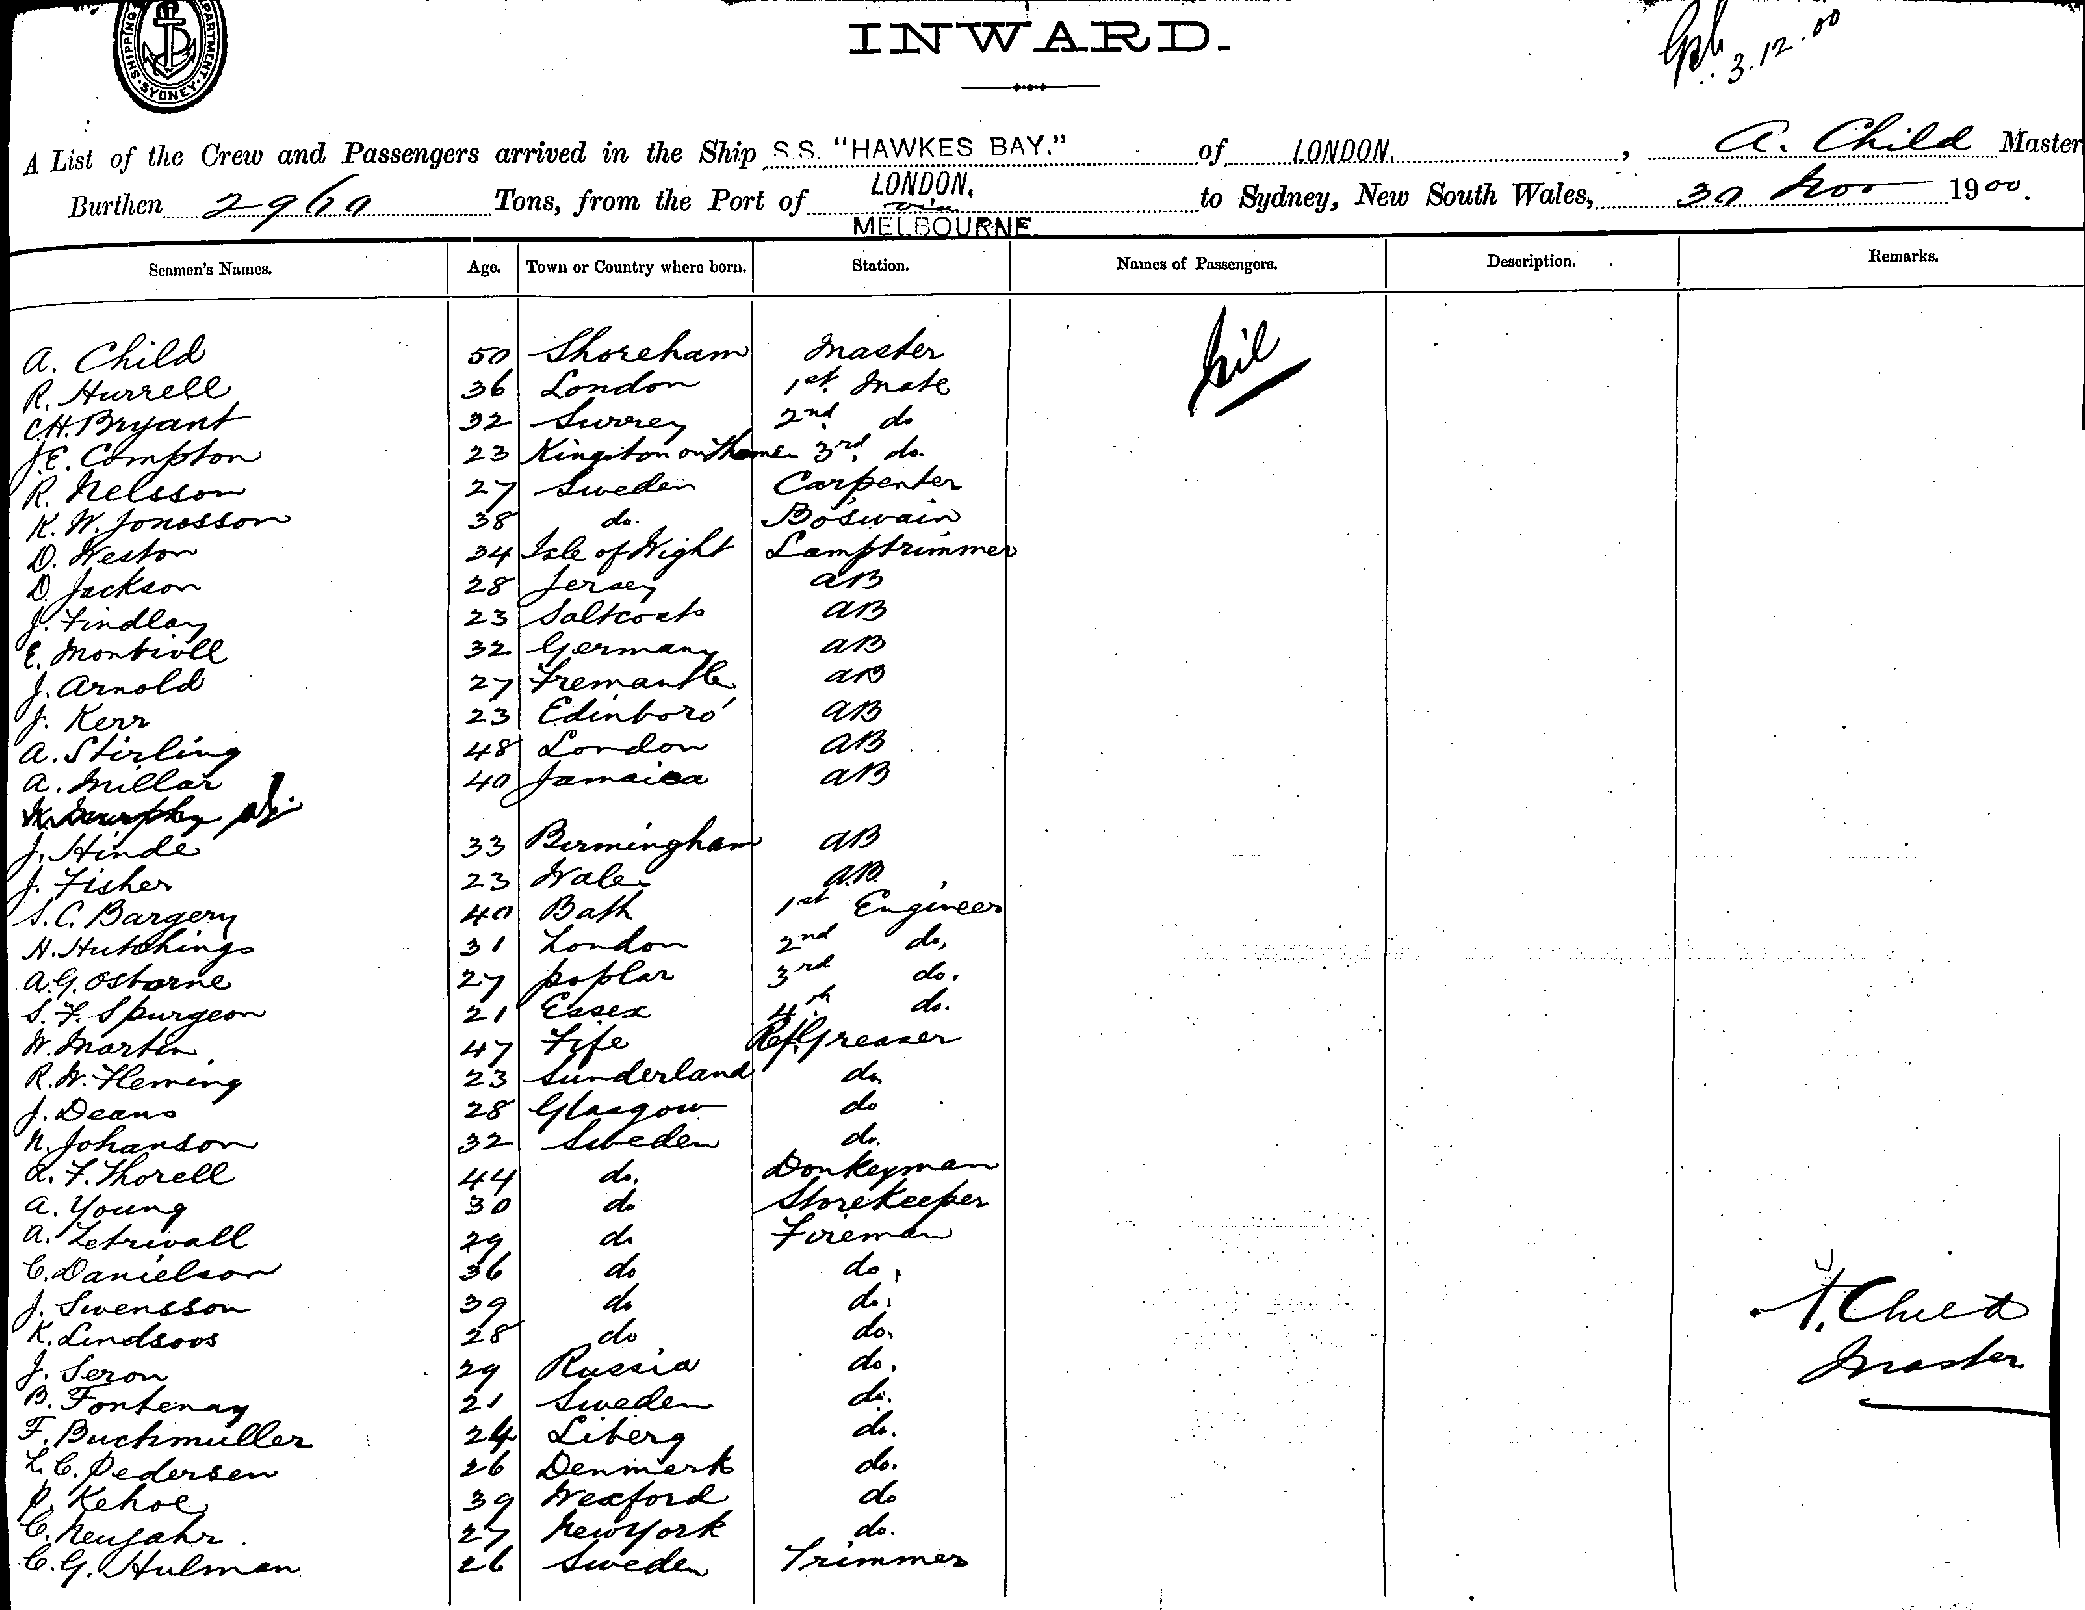 SHIPPING DEPARTMENT. SYDNEY.
INWARD.
3.12.00
A List of the Crew and Passengers arrived in the Ship S.S. "HAWKES BAY." of LONDON, A. Child Master
Burthen 2960 Tons, from the Port of LONDON, via MELBOURNE. to Sydney, New South Wales, 30 Nov 1900.
Seamen's Names. Age. Town or Country where born. Station. Names of Passengers. Description. Remarks.
Nil
A. Child 50 Shoreham Master
R. Hurrell 36 London 1st. Mate
C.H. Bryant 32 Surrey 2nd do
J.E. Compton 23 Kingston on Thames 3rd. do.
R. Nelsson 27 Sweden Carpenter
K. W. Jonosson 38 do. Boswain
D. Weston 34 Isle of Wight Lamptrimmer
D Jackson 28 Jersey AB
J. Findlay 23 Saltcoats AB
E. Montivll 32 Germany AB
J. Arnold 27 Fremantle AB
J. Kerr 23 Edinboro' AB
A. Stirling 48 London AB
A. Millar 40 Jamaica AB
Murphy
J. Hinde 33 Birmingham AB
J. Fisher 23 Wales A.B.
S. C. Bargery 40 Bath 1st Engineer
H. Hutchings 31 London 2nd do,
A.G. Osborne 27 Poplar 3rd do.
S. F. Spurgeon 21 Essex 4th do.
W. Martin 47 Fife Ref. Greaser
R. W. Fleming 23 Sunderland do
J. Deans 28 Glasgow do
N. Johanson 32 Sweden do.
L. F. Thorell 44 do. Donkeyman
A. Young 30 do Storekeeper
A. Zetrivall 29 do Fireman
C. Danielson 36 do do.
J. Swensson 39 do do.
K. Lindsoos 28 do do.
J. Seron 29 Russia do.
B. Fontenay 21 Sweden do.
F. Buchmuller 24 Liberg do.
L. C. Pedersen 26 Denmerk do.
P. Kehoe 39 Wexford do
C. Neujahr 27 New York do.
C. G. Hulman 26 Sweden Trimmer
A. Child
Master